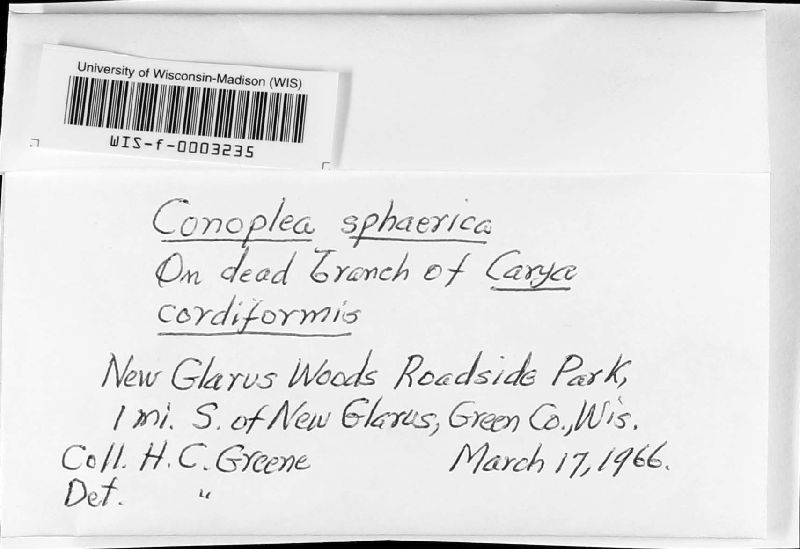 University of Wisconsin-Madison (WIS)
WIS-f-0003235
Conoplea sphaerica
On dead branch of Carya
cordiformis
New Glarus Woods Roadside Park,
1 mi. S. of New Glarus, Green Co., Wis.
Coll. H. C. Greene March 17, 1966.
Det. "